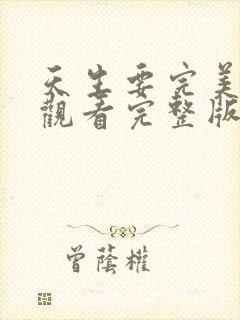 天生要完美
觀看完整版
曾蔭權